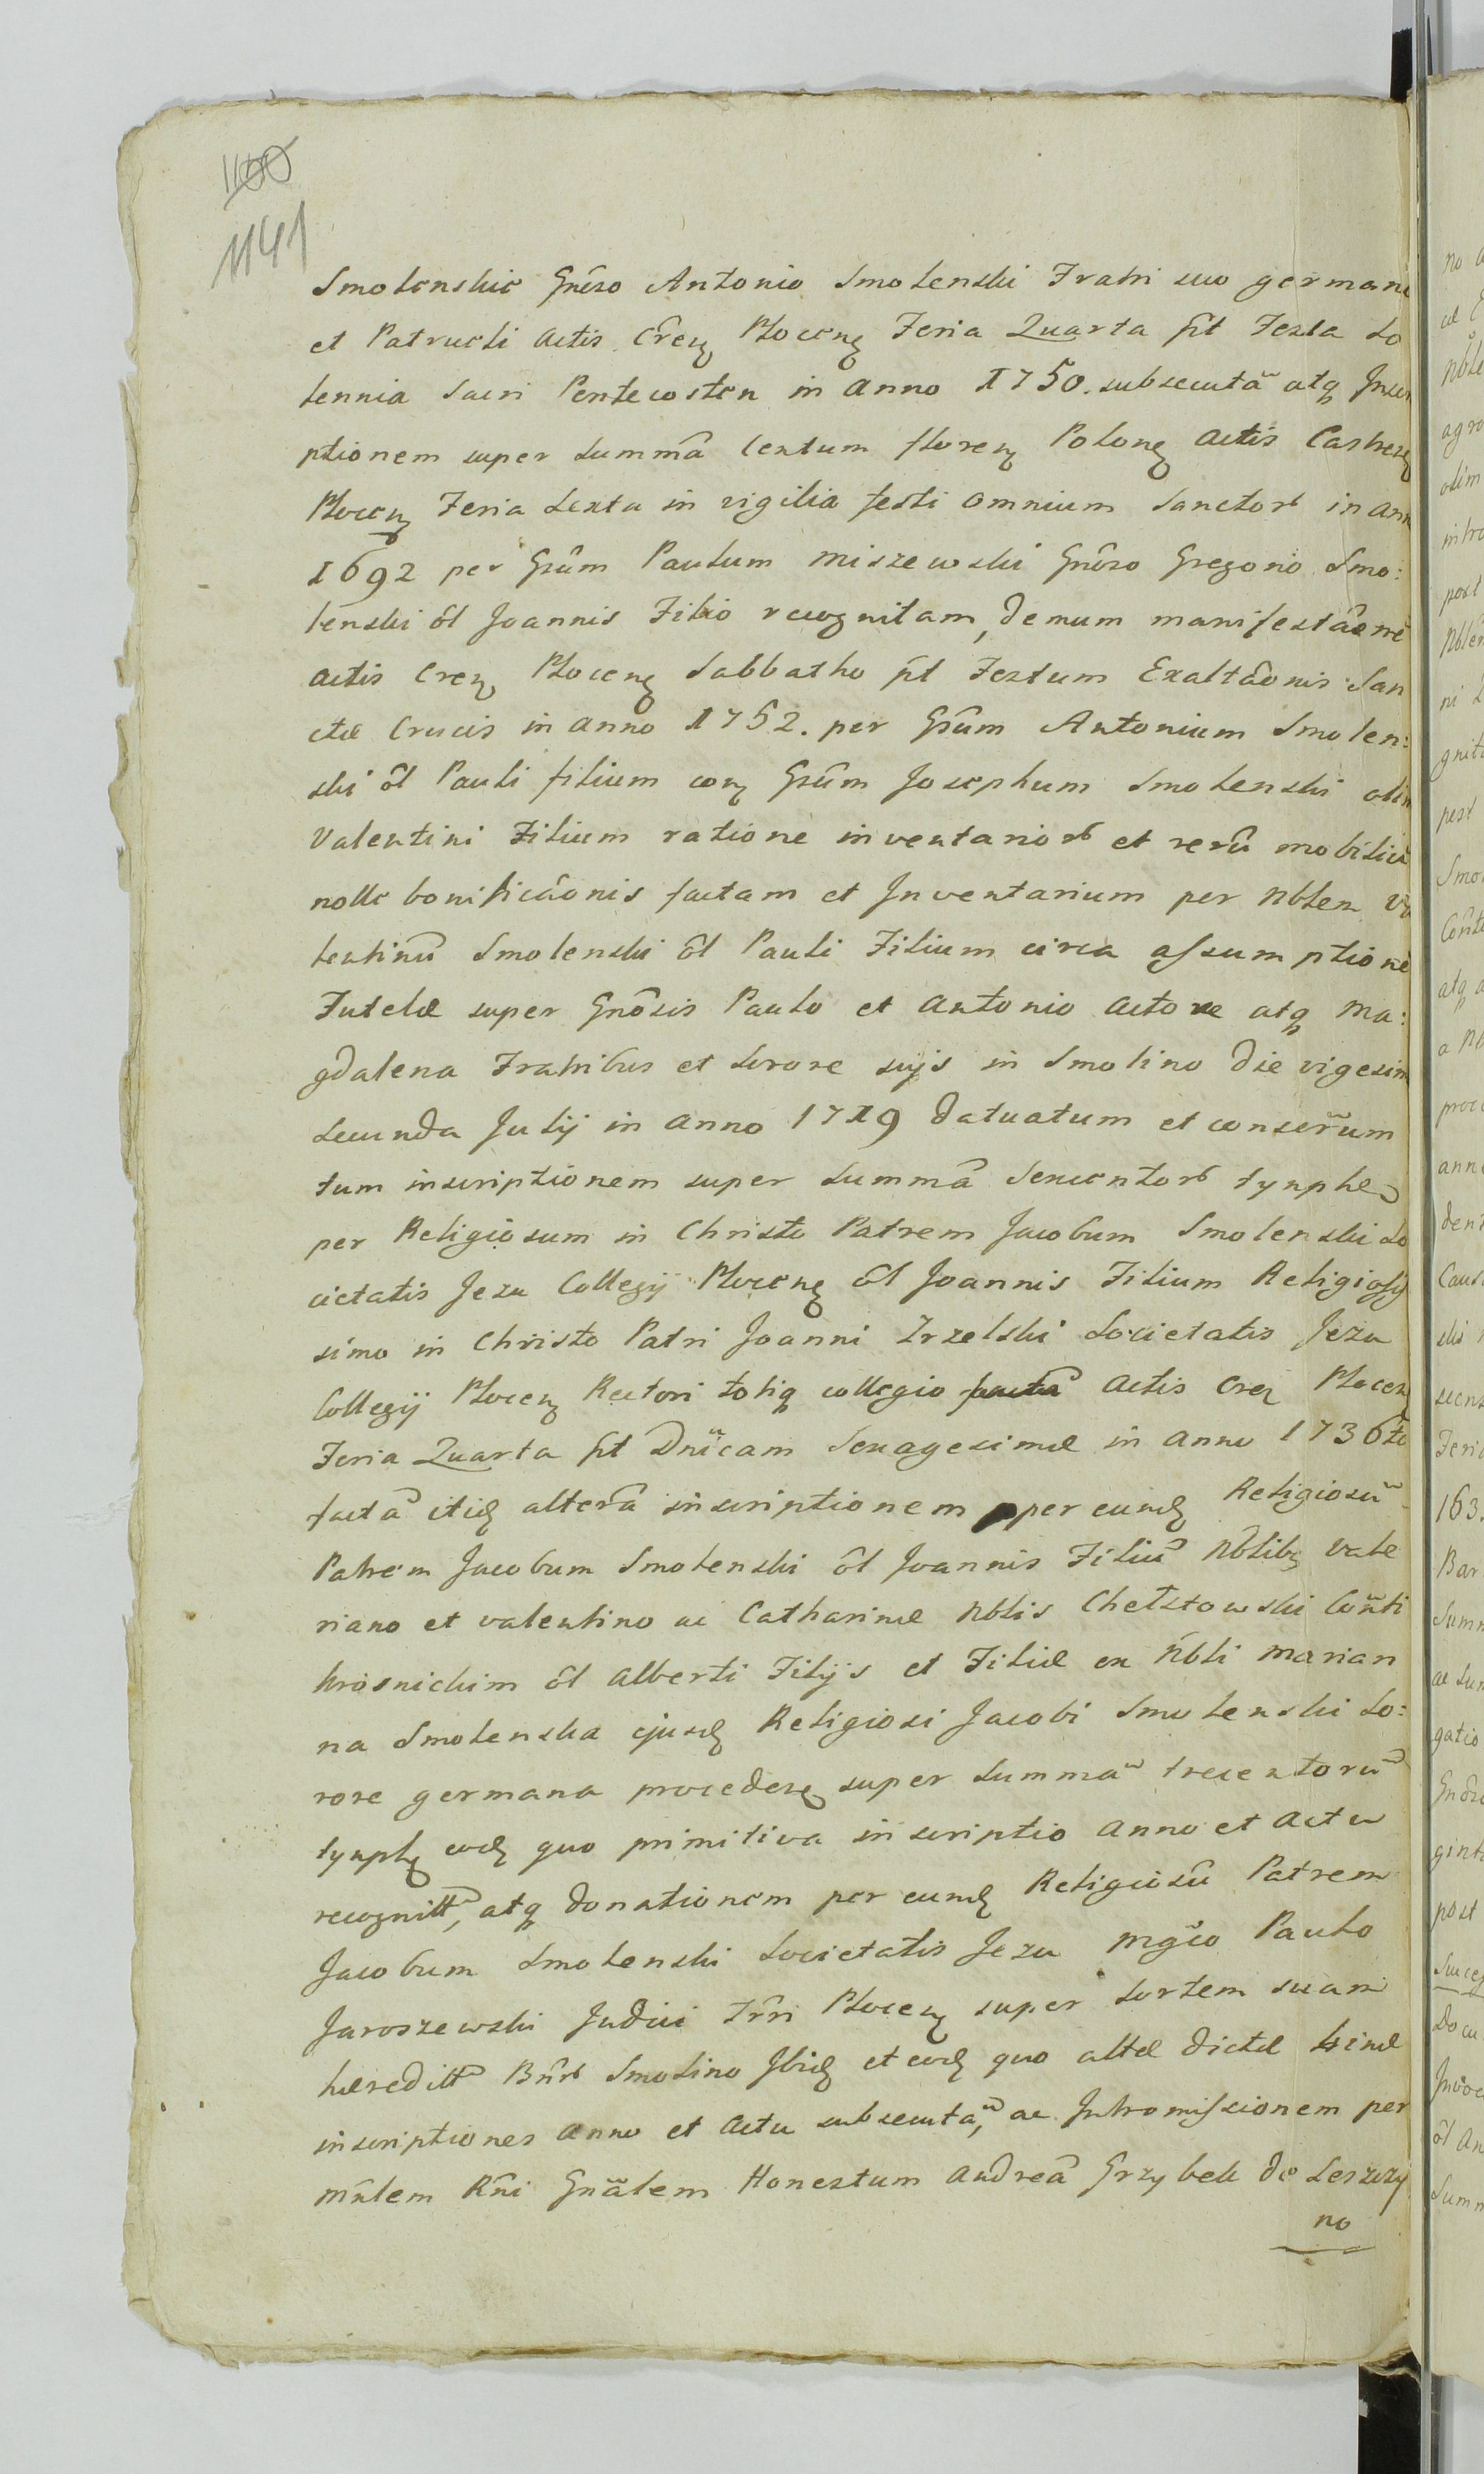 1100
1141
Smolenskie Gnêso Antonio Smolenski Fratri suo germani
et Patrueli Actis Crẽn Plocen Feria Quarta p̃t Festa So
lennia Sacri Pentecosten in Anno 1750. subsecutã atq Inscri
ptionem super Summã Centum floren Polon Actis Castren
Plocen Feria Sexta in vigilia festi Omnium Sanctor in Ann
1692 per Gsũm Paulum Miszewski Gnêso Gregorio Smo:
lenski õl Joannis Filio recognitam, demum manifestãone
Actis Cren Plocen Sabbatho p̃t Festum Exaltãonis San
ctæ Crucis in Anno 1752. per Gsũm Antonium Smolen:
ski õl Pauli filium con Gsũm Josephum Smolenski olim
Valentini Filium ratione inventarior et rerũ mobiliũ
nolle bonificãonis factam et Inventarium per Nblem Va
lentinũ Smolenski õl Pauli Filium circa assumptionẽ
Tutelæ super Gnõsis Paulo et Antonio Actore atq Ma:
gdalena Fratribus et Sorore suijs in Smolino die vigesim
Secunda Julij in Anno 1719 datuatum et conser̃um
tum inscriptionem super Summã Sexcentor tynphe
per Religiosum in Christo Patrem Jacobum Smolenski So
cietatis Jesu Collegij Plocen õl Joannis Filium Religiosis
simo in Christo Patri Joanni Zrzelski Societatis Jesu
Collegij Plocen Rectori totiq collegio factã Actis Cren Plocen
Feria Quarta p̃t Dnĩcam Sexagesimæ in Anno 1736to
factã itid alterã inscriptionem per eund Religiosũ
Patrem Jacobum Smolenski õl Joannis Filiũ Nblib Vale
riano et Valentino ac Catharinæ Nblis Chełstowski Cõnti
Krosnickim õl Alberti Filijs et Filiæ ex Nbli Marian
na Smolenska ejusd Religiosi Jacobi Smolenski So:
rore germana proceden super Summã trecentorũ
tynph eod quo primitiva inscriptio Anno et Actu
recognittã, atq donationem per eund Religiosũ Patrem
Jacobum Smolenski Societatis Jesu Mgĩco Paulo
Jaroszewski Judici Tr̃ri Plocen super Sortem suam
hæredittã Bnr Smolino Ibid et eod quo altæ dictæ binæ
inscriptiones Anno et Actu subsecutã, ac Intromissionem per
Mñlem R̃ni Gnãlem Honestum Andreã Grzybek de Leszczy
no